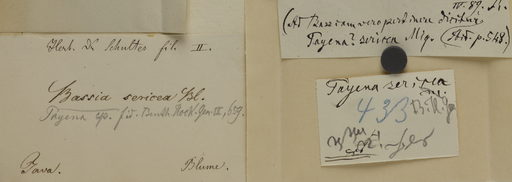 Herb. D. Schultes fil. II.
Bassia sericea Bl.
Payena sp. fid. Benth. Hook. Gen. II, 659.
Java.
Blume.
III. 89.
(Ad Bassiam vero pertinere dicitur
Payena? sericea Miq. (Ad. p. 548.)
Payena sericea
433